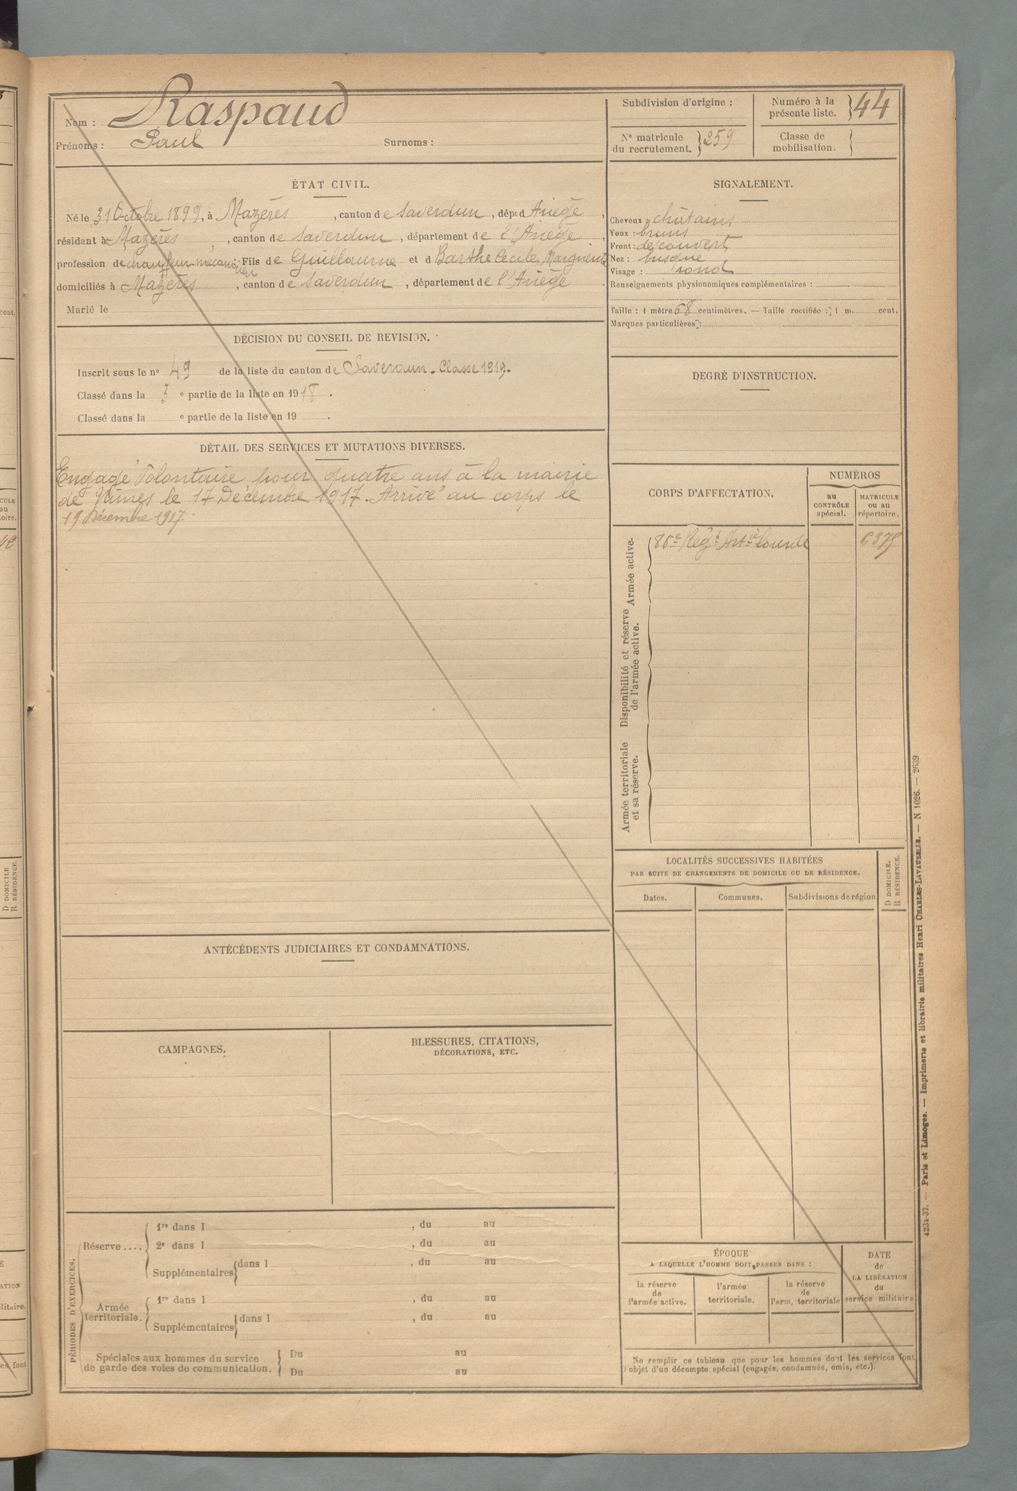 Nom : Raspaud
Prénoms : Paul Surnoms :
Subdivision d'origine :
Numéro à la présente liste. 44
N° matricule du recrutement. 259
Classe de mobilisation.
ÉTAT CIVIL.
Né le 31 Octobre 1899, à Mazères, canton de Saverdun, dépt d Ariège,
résidant à Mazères, canton de Saverdun, département de l'Ariège
profession de chauffeur-mécanicien Fils de Guillaume et d Barthe Cécile,
domiciliés à Mazères, canton de Saverdun, département de l'Ariège
Marié le
SIGNALEMENT.
Cheveux : châtains
Yeux : bruns
Front : découvert
Nez : busqué
Visage : rond
Renseignements physionomiques complémentaires :
Taille : 1 mètre 58 centimètres. — Taille rectifiée : 1 m. cent.
Marques particulières :
DÉCISION DU CONSEIL DE REVISION.
Inscrit sous le n° 49 de la liste du canton de Saverdun. Classe 1919.
Classé dans la e partie de la liste en 1918.
Classé dans la e partie de la liste en 19 .
DEGRÉ D'INSTRUCTION.
DÉTAIL DES SERVICES ET MUTATIONS DIVERSES.
Engagé Volontaire pour quatre ans à la mairie
de Nîmes le 17 Décembre 1917. Arrivé au corps le
19 Décembre 1917.
CORPS D'AFFECTATION.
NUMÉROS
au contrôle spécial.
matricule ou au répertoire.
Armée active.
Regt Artie Lourde
Disponibilité et réserve de l'armée active.
Armée territoriale et sa réserve.
LOCALITÉS SUCCESSIVES HABITÉES
PAR SUITE DE CHANGEMENTS DE DOMICILE OU DE RÉSIDENCE.
Dates. Communes. Subdivisions de région
D DOMICILE.
R RÉSIDENCE.
ANTÉCÉDENTS JUDICIAIRES ET CONDAMNATIONS.
CAMPAGNES.
BLESSURES, CITATIONS,
DÉCORATIONS, ETC.
PÉRIODES D'EXERCICES.
Réserve ....
1re dans l , du au
2e dans l , du au
Supplémentaires dans l , du au
Armée territoriale.
1re dans l , du au
Supplémentaires dans l , du au
Spéciales aux hommes du service
de garde des voies de communication.
Du au
Du au
ÉPOQUE
A LAQUELLE L'HOMME DOIT PASSER DANS :
la réserve de l'armée active.
l'armée territoriale.
la réserve de l'arm. territoriale
DATE de LA LIBÉRATION du service militaire
Ne remplir ce tableau que pour les hommes dont les services font
l'objet d'un décompte spécial (engagés, condamnés, omis, etc.).
Paris et Limoges. — Imprimerie et librairie militaires Henri CHARLES-LAVAUZELLE. — N 1026.